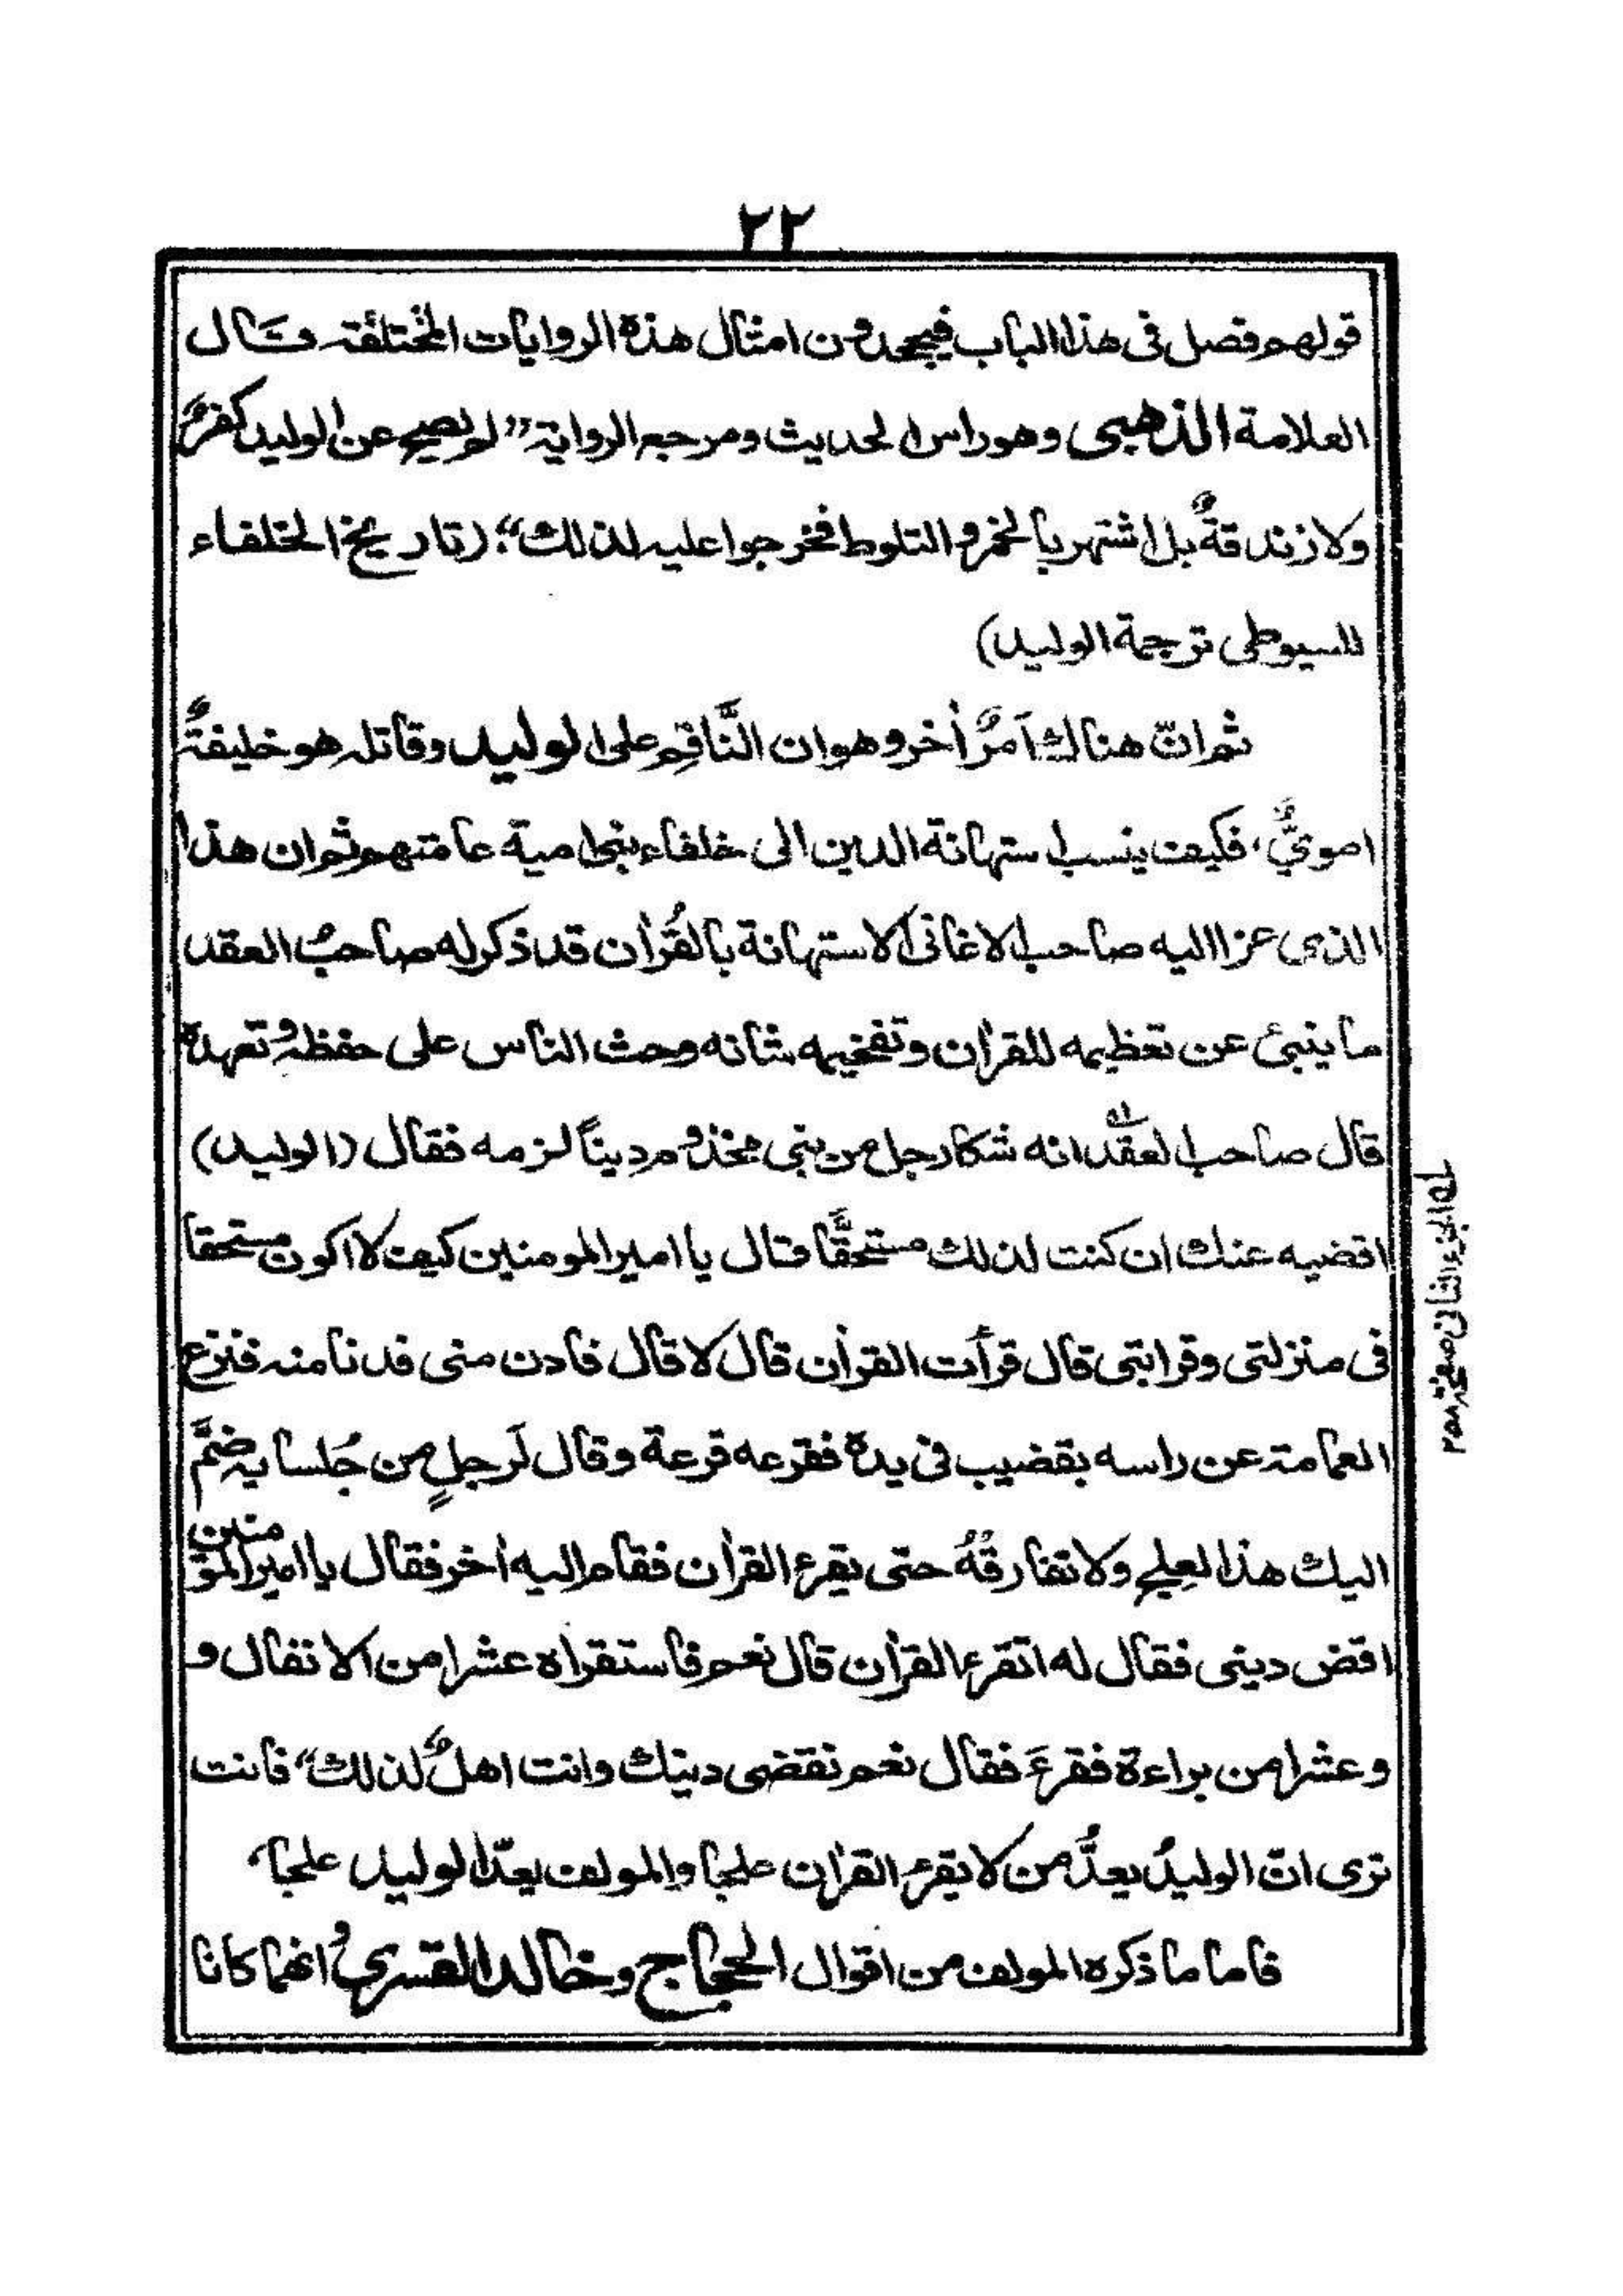 ٢٢
قولهم فصل فى هذا الباب فيجحدون امثال هذه الروايات المختلقة قال
العلامة الذهبى وهو راس الحديث ومرجع الرواية "لم يصح عن الوليد كفرٌ
ولا زندقةٌ بل اشتهر بالخمر والتلوط فخرجوا عليه لذلك": (تاريخ الخلفاء
للسيوطى ترجمة الوليد)
ثم انّ هناك اَمرٌ اٰخر وهو ان النَّاقِم على الوليد وقاتله هو خليفةٌ
امويٌّ، فكيف ينسب استهانة الدين الى خلفاء بنى امية عامتهم ثم ان هذا
الذى عزا اليه صاحب الاغانى الاستهانة بالقُراٰن قد ذكر له صاحبُ العقد
ما ينبئ عن تعظيمه للقراٰن وتفخيمه شانه وحث الناس على حفظه وتعهده
قال صاحب العقد انه شكا رجل من بنى مخزوم ديناً لزمه فقال (الوليد)
اقضيه عنك ان كنت لذلك مستحقًّا قال يا امير المومنين كيف لا اكون مستحقا
فى منزلتى وقرابتى قال قرأت القراٰن قال لا قال فادن منى فدنا منه فنزع
العمامة عن راسه بقضيب فى يده فقرعه قرعة وقال لَرجلٍ من جُلسايه ضمَّ
اليك هذا العلج ولا تفارقهُ حتى يقرء القراٰن فقام اليه اٰخر فقال يا امير المومنين
اقض دينى فقال له اتقرء القراٰن قال نعم فاستقراه عشرا من الانفال و
وعشرا من براءة فقرءَ فقال نعم نقضى دينك وانت اهلٌ لذلك" فانت
ترى انّ الوليدُ يعدُّ من لا يقرء القراٰن علجا والمولف يعدّ الوليد علجا،
فاما ما ذكره المولف من اقوال الحجاج وخالد القسري وانهما كانا
له الجزء الثانى صفحة